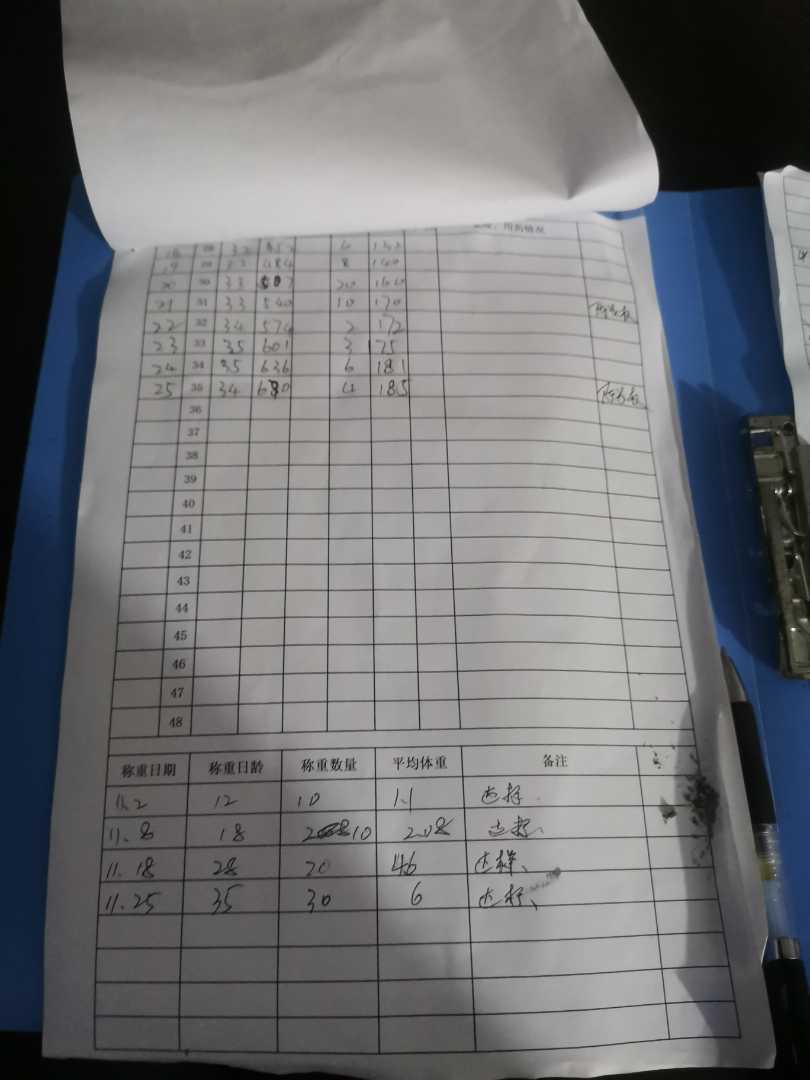 用药情况
19 29 33 484 8 140
20 30 33 20 160
21 31 33 540 10 170
22 32 34 574 2 172
23 33 35 601 3 175
24 34 35 636 6 181
25 35 34 4 185
36
37
38
39
40
41
42
43
44
45
46
47
48
称重日期 称重日龄 称重数量 平均体重 备注
11.2 12 10 1.1 达标
11.8 18 10 2.08 达标、
11.18 28 20 46 达标、
11.25 35 30 6 达标、